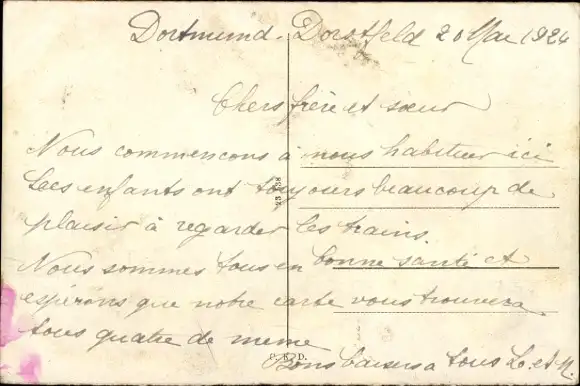 Dortmund-Dorstfeld 20 Mai 1924
Chers frère et sœur
Nous commencons à nous habituer ici
Les enfants ont toujours beaucoup de
plaisir à regarder les trains.
Nous sommes tous en bonne santé et
espérons que notre carte vous trouvera
tous quatre de meme
Bons baisers à tous L. et M.